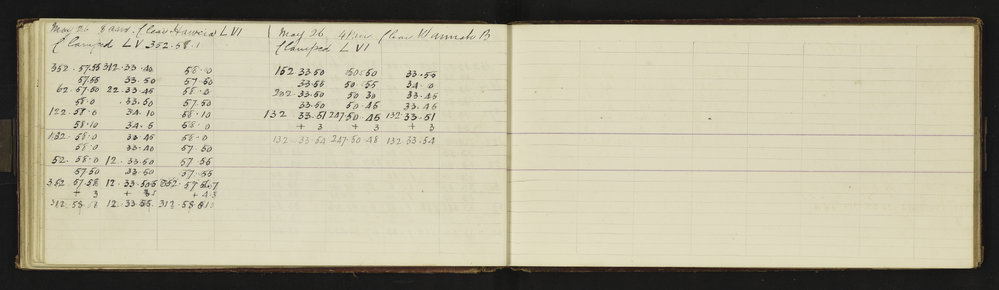 May 26 8 am. Clear Hawera LVI
Clamped LV 352.58.1
352.57.55 312.33.40 58.10
57.55 33.50 57.50
62.57.50 22.33.45 58.0
58.0 .33.50 57.50
122.58.0 34.10 58.10
58.10 34.5 58.0
132.58.0 33.45 58.0
58.0 33.40 57.50
52.58.0 12.33.50 57.55
57.50 33.50 57.55
352.57.58 12.33.50
+ 3 + + 4.3
312.58. 12.33.55 312.58.
May 26 Clear B
Clamped LVI
152 33.50 50.50 33.55
33.55 50 55 34.0
202.33.50 50 30 33.45
33.50 50.45 33.45
132 33.51 247.50.45 132.33.51
+ 3 + 3 + 3
132.33.54 247.50.48 132.33.54